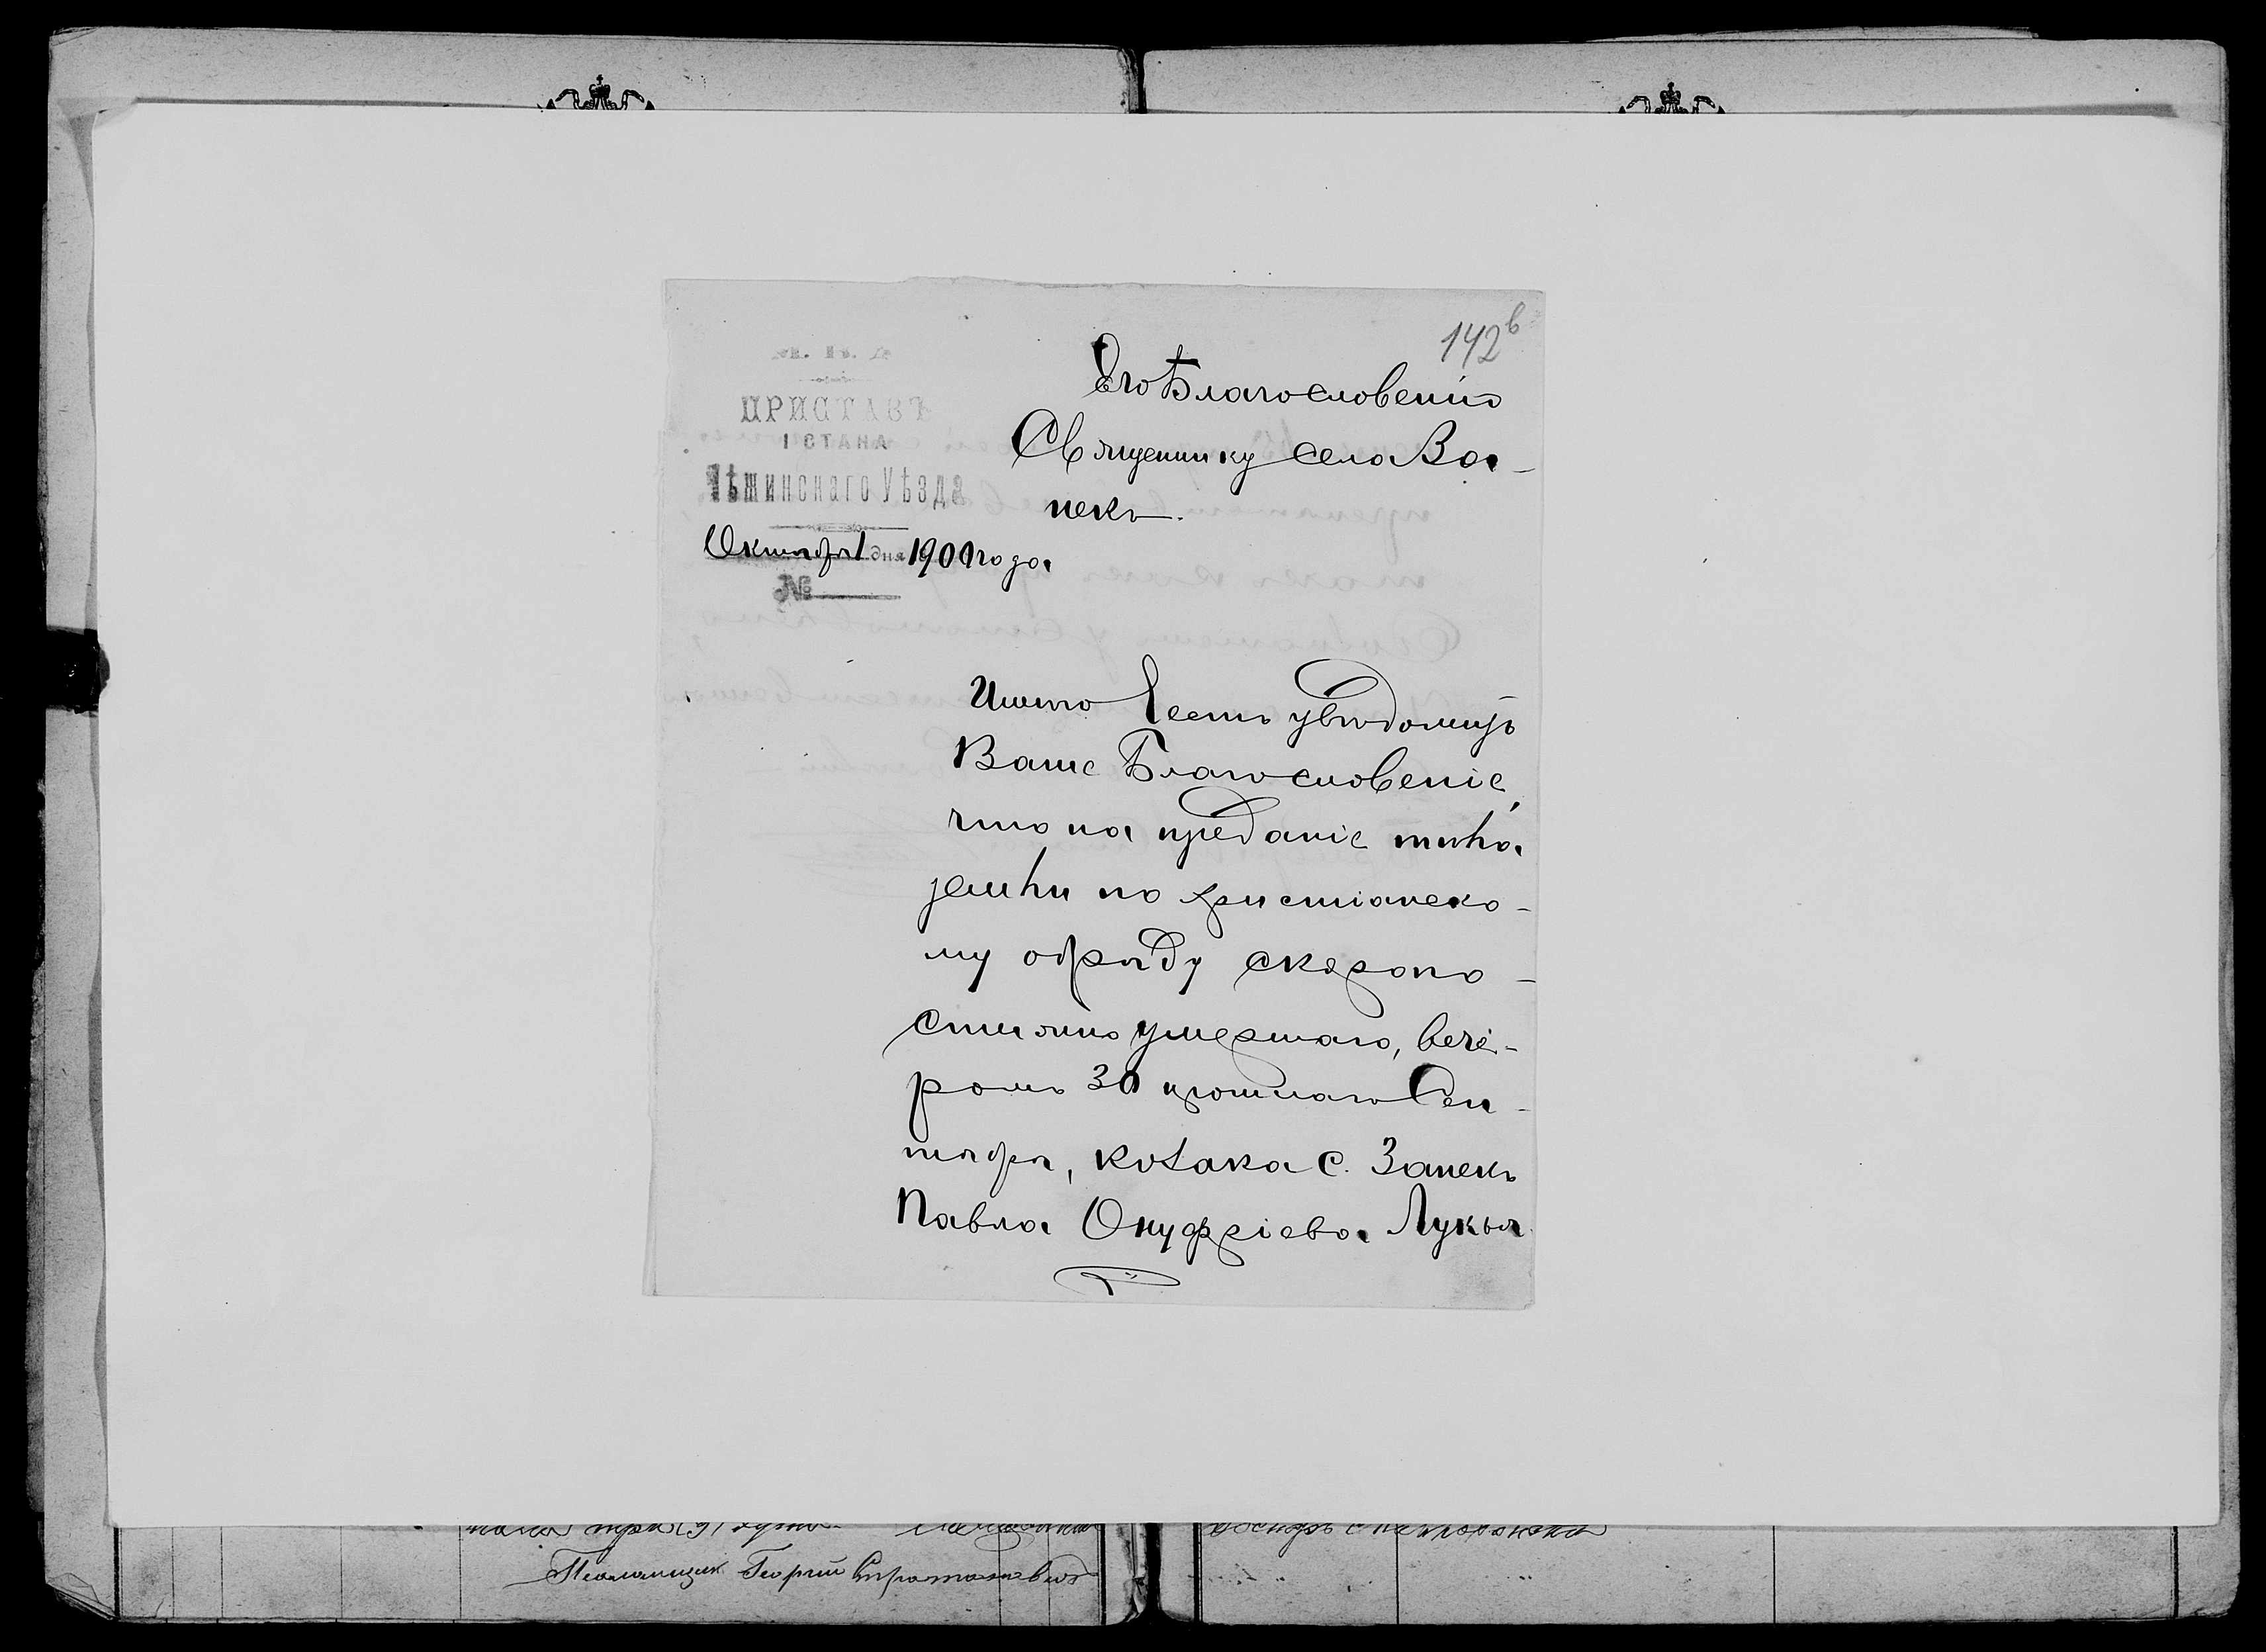 142б
М. В. Д.
ПРИСТАВЪ
1 СТАНА
Нѣжинскаго Уѣзда
Октября 1 дня 1900 года
№
Его Благословенію
Священнику села Ва-
Имѣю честь увѣдомить
Ваше Благословеніе,
что на преданіе тѣла
землѣ по христіанско-
му обряду скоропо-
стижно умершаго, вече-
ромъ 30 прошлаго Сен-
тября, козака с. Занекъ
Павла Онуфріева Лукья
Псаломщик Георгий